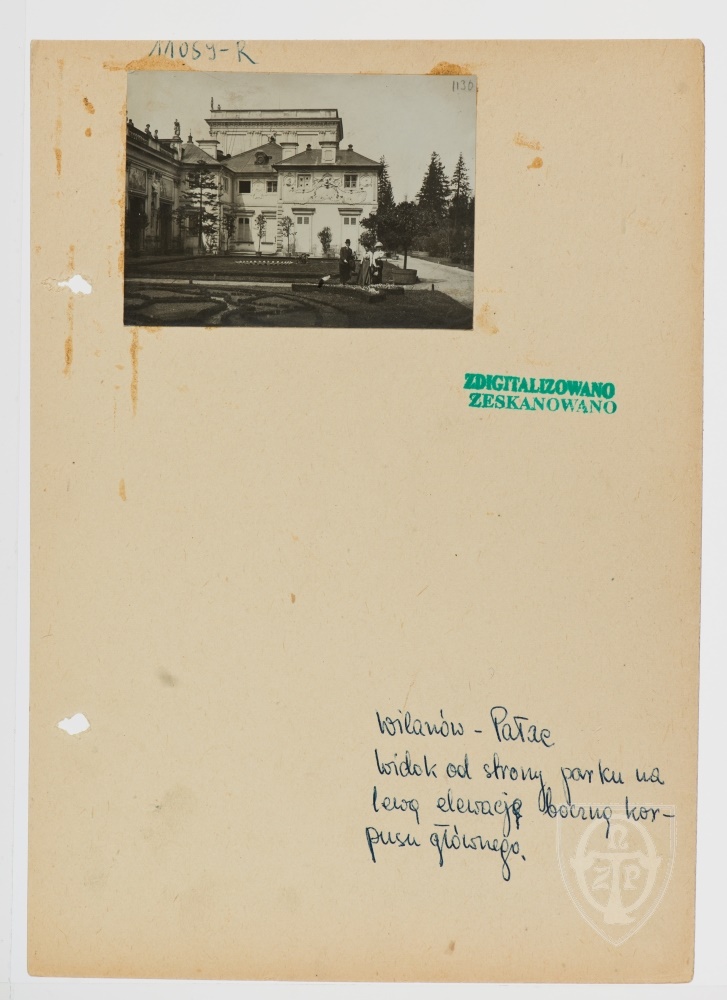 11059-R
1130
ZDIGITALIZOWANO
ZESKANOWANO
Wilanów - Pałac
Widok od strony parku na
lewą elewację boczną kor-
pusu głównego.
TNZP